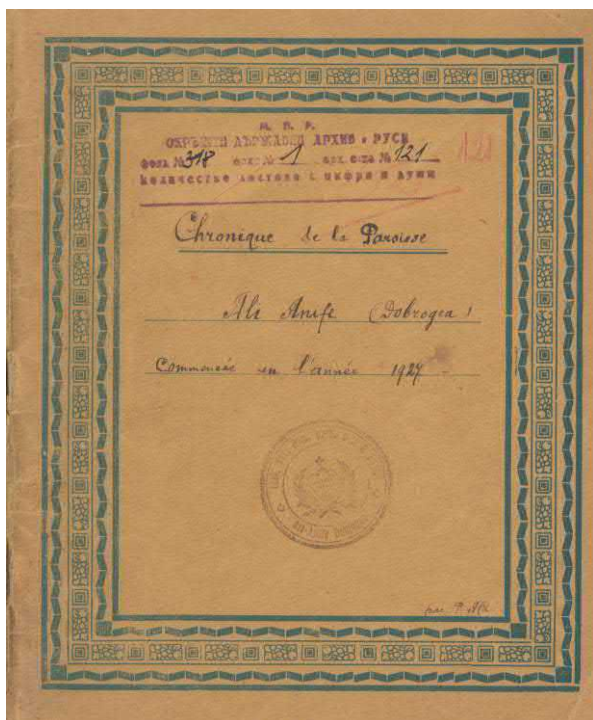 М. В. Р.
ОКРЪЖЕН ДЪРЖАВЕН АРХИВ - РУСЕ
фонд № 318 опис № 1 арх. един. № 121
количество листове с цифри и думи
121
Chronique de la Paroisse
Ali Anife (Dobrogea)
Commencée en l'année 1927 -
par P.